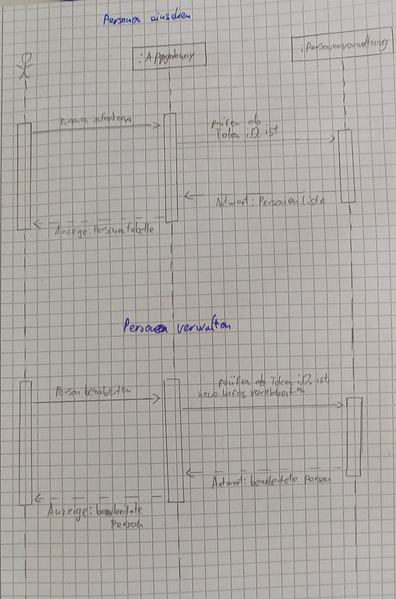 Personen einsehen
:Personenverwaltung
prüfen ob
Token i.O. ist
Antwort: Personen Liste
Anzeige: Personentabelle
Personen verwalten
Person bearbeiten
prüfen ob Token i.O. ist,
neue Infos verarbeiten
Antwort: bearbeitete Person
Anzeige: bearbeitete
Person